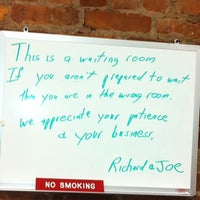 This is a waiting room
If you aren't prepared to wait
then you are in the wrong room.
We appreciate your patience
& your business.
Richard & Joe
NO SMOKING